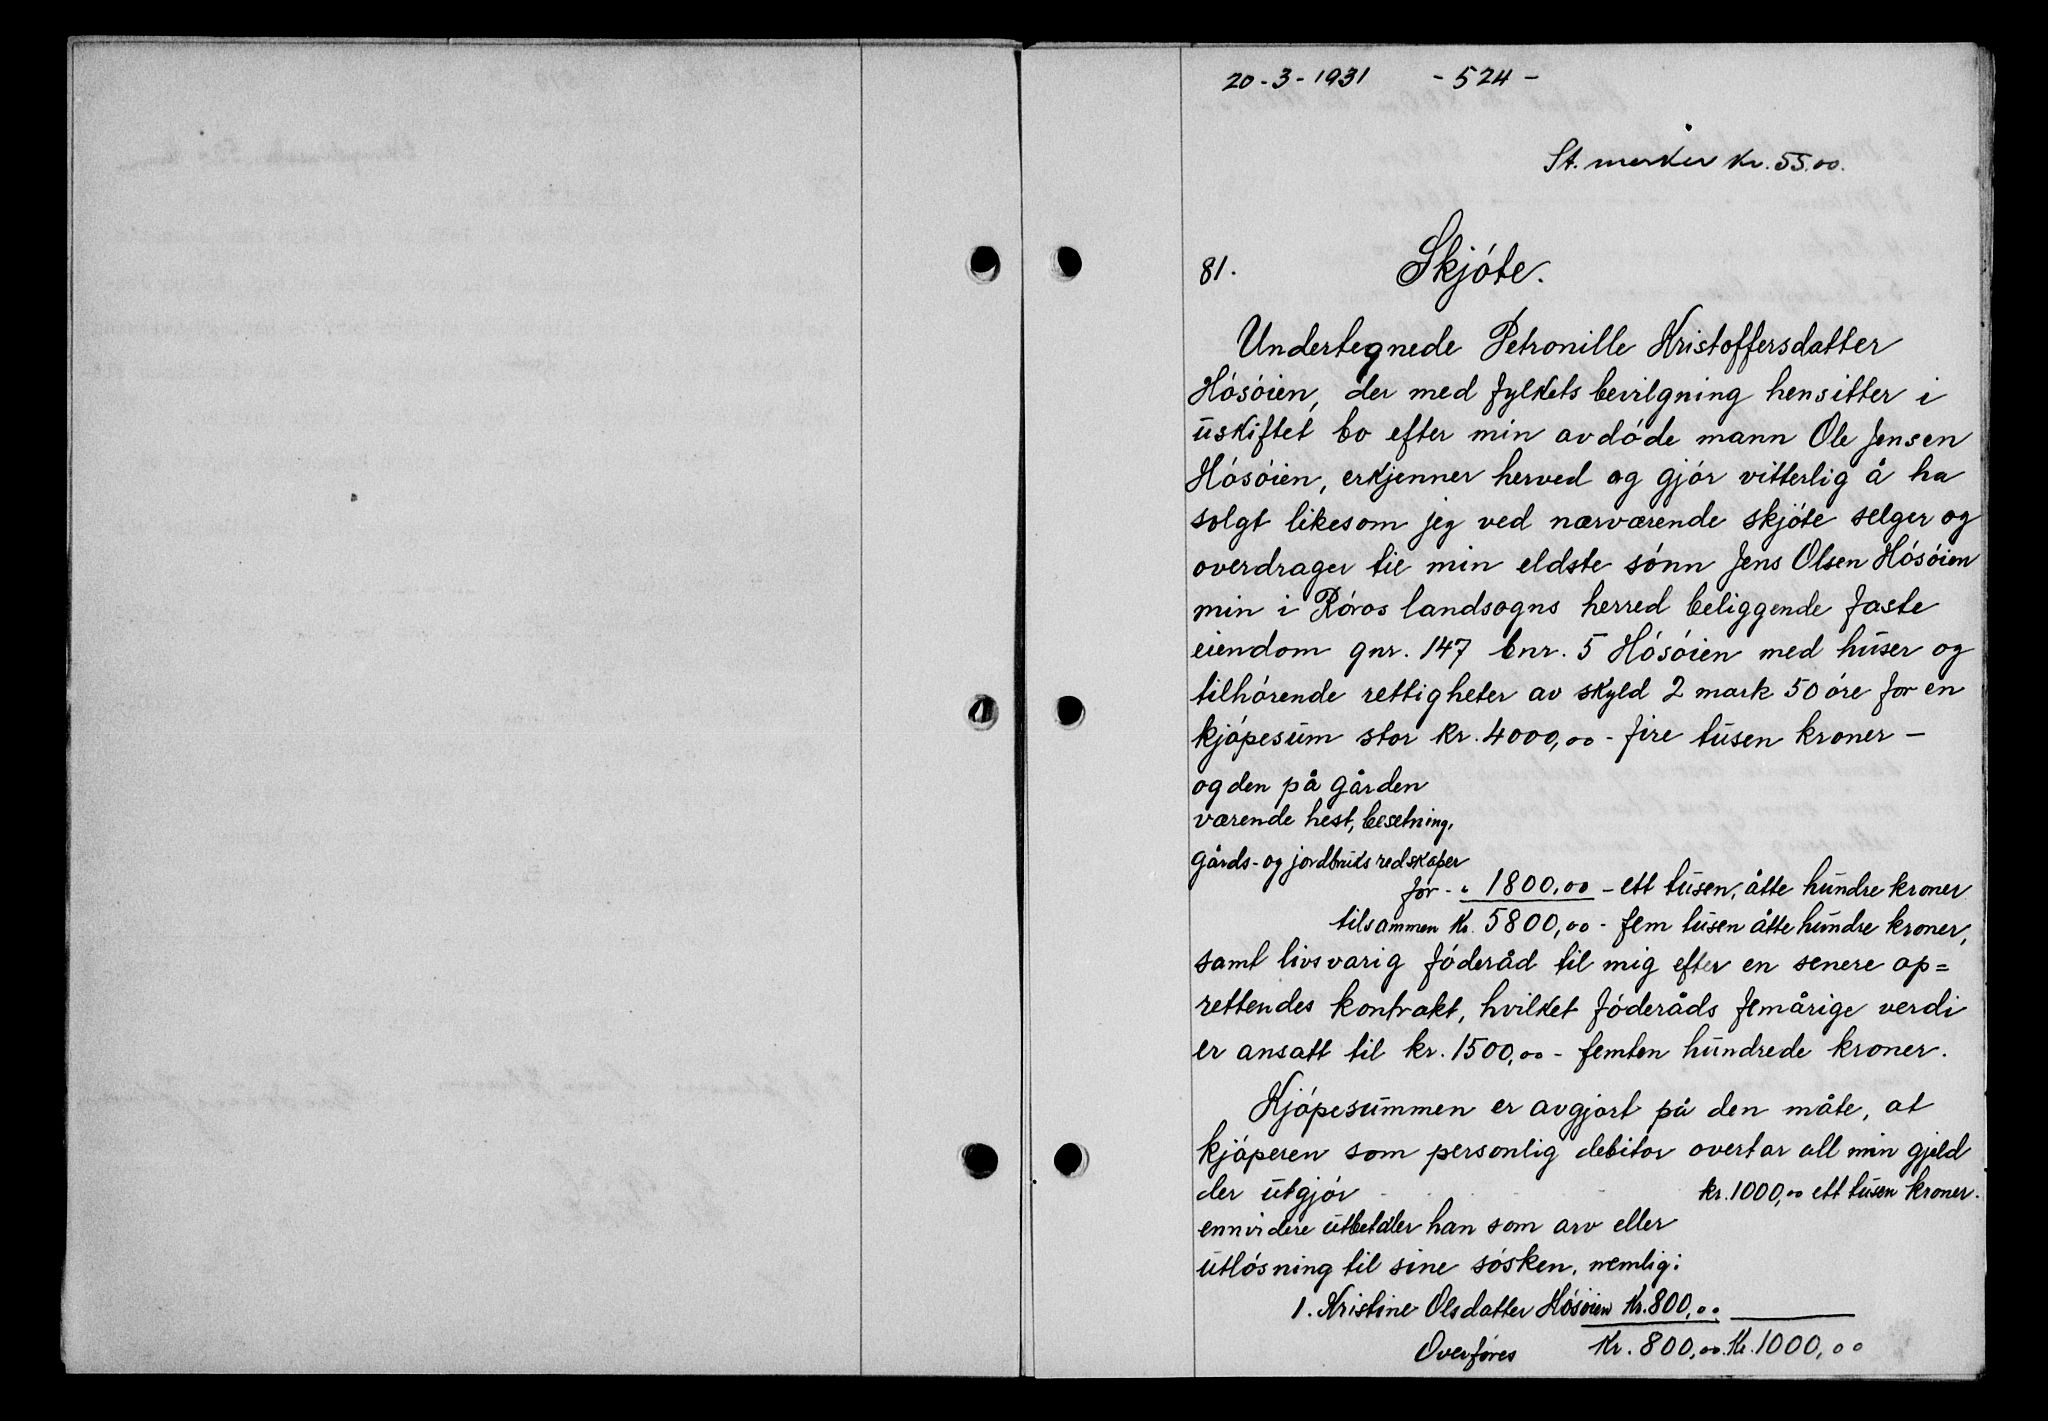 20-3-1931 - 524 -
St. merker kr. 55.00.
81. Skjóte.
Undertegnede Petronille Kristoffersdatter
Hósóien, der med fylkets bevilgning hensitter i
uskiftet bo efter min avdóde mann Ole Jensen
Hósóien, erkjenner herved og gjór vitterlig å ha
solgt likesom jeg ved nærværende skjóte selger og
overdrager til min eldste sónn Jens Olsen Hósóien
min i Róros landsogns herred beliggende faste
eiendom gnr. 147 bnr. 5 Hósóien med huser og
tilhórende rettigheter av skyld 2 mark 50 óre for en
kjópesum stor kr. 4000,00 - fire tusen kroner -
og den på gården
værende hest, besetning,
gårds- og jordbruks redskaper
for - " 1800,00 - ett tusen, åtte hundre kroner
tilsammen kr. 5800,00 - fem tusen åtte hundre kroner,
samt livsvarig fóderåd til mig efter en senere op=
rettendes kontrakt, hvilket fóderåds femårige verdi
er ansatt til kr. 1500,00 - femten hundrede kroner.
Kjópesummen er avgjort på den måte, at
kjóperen som personlig debitor overtar all min gjeld
der utgjór kr. 1000,00 ett tusen kroner.
ennvidere utbetaler han som arv eller
utlósning til sine sósken, nemlig:
1. Kristine Olsdatter Hósóien Kr. 800,00
Overfóres Kr. 800,00. Kr. 1000,00